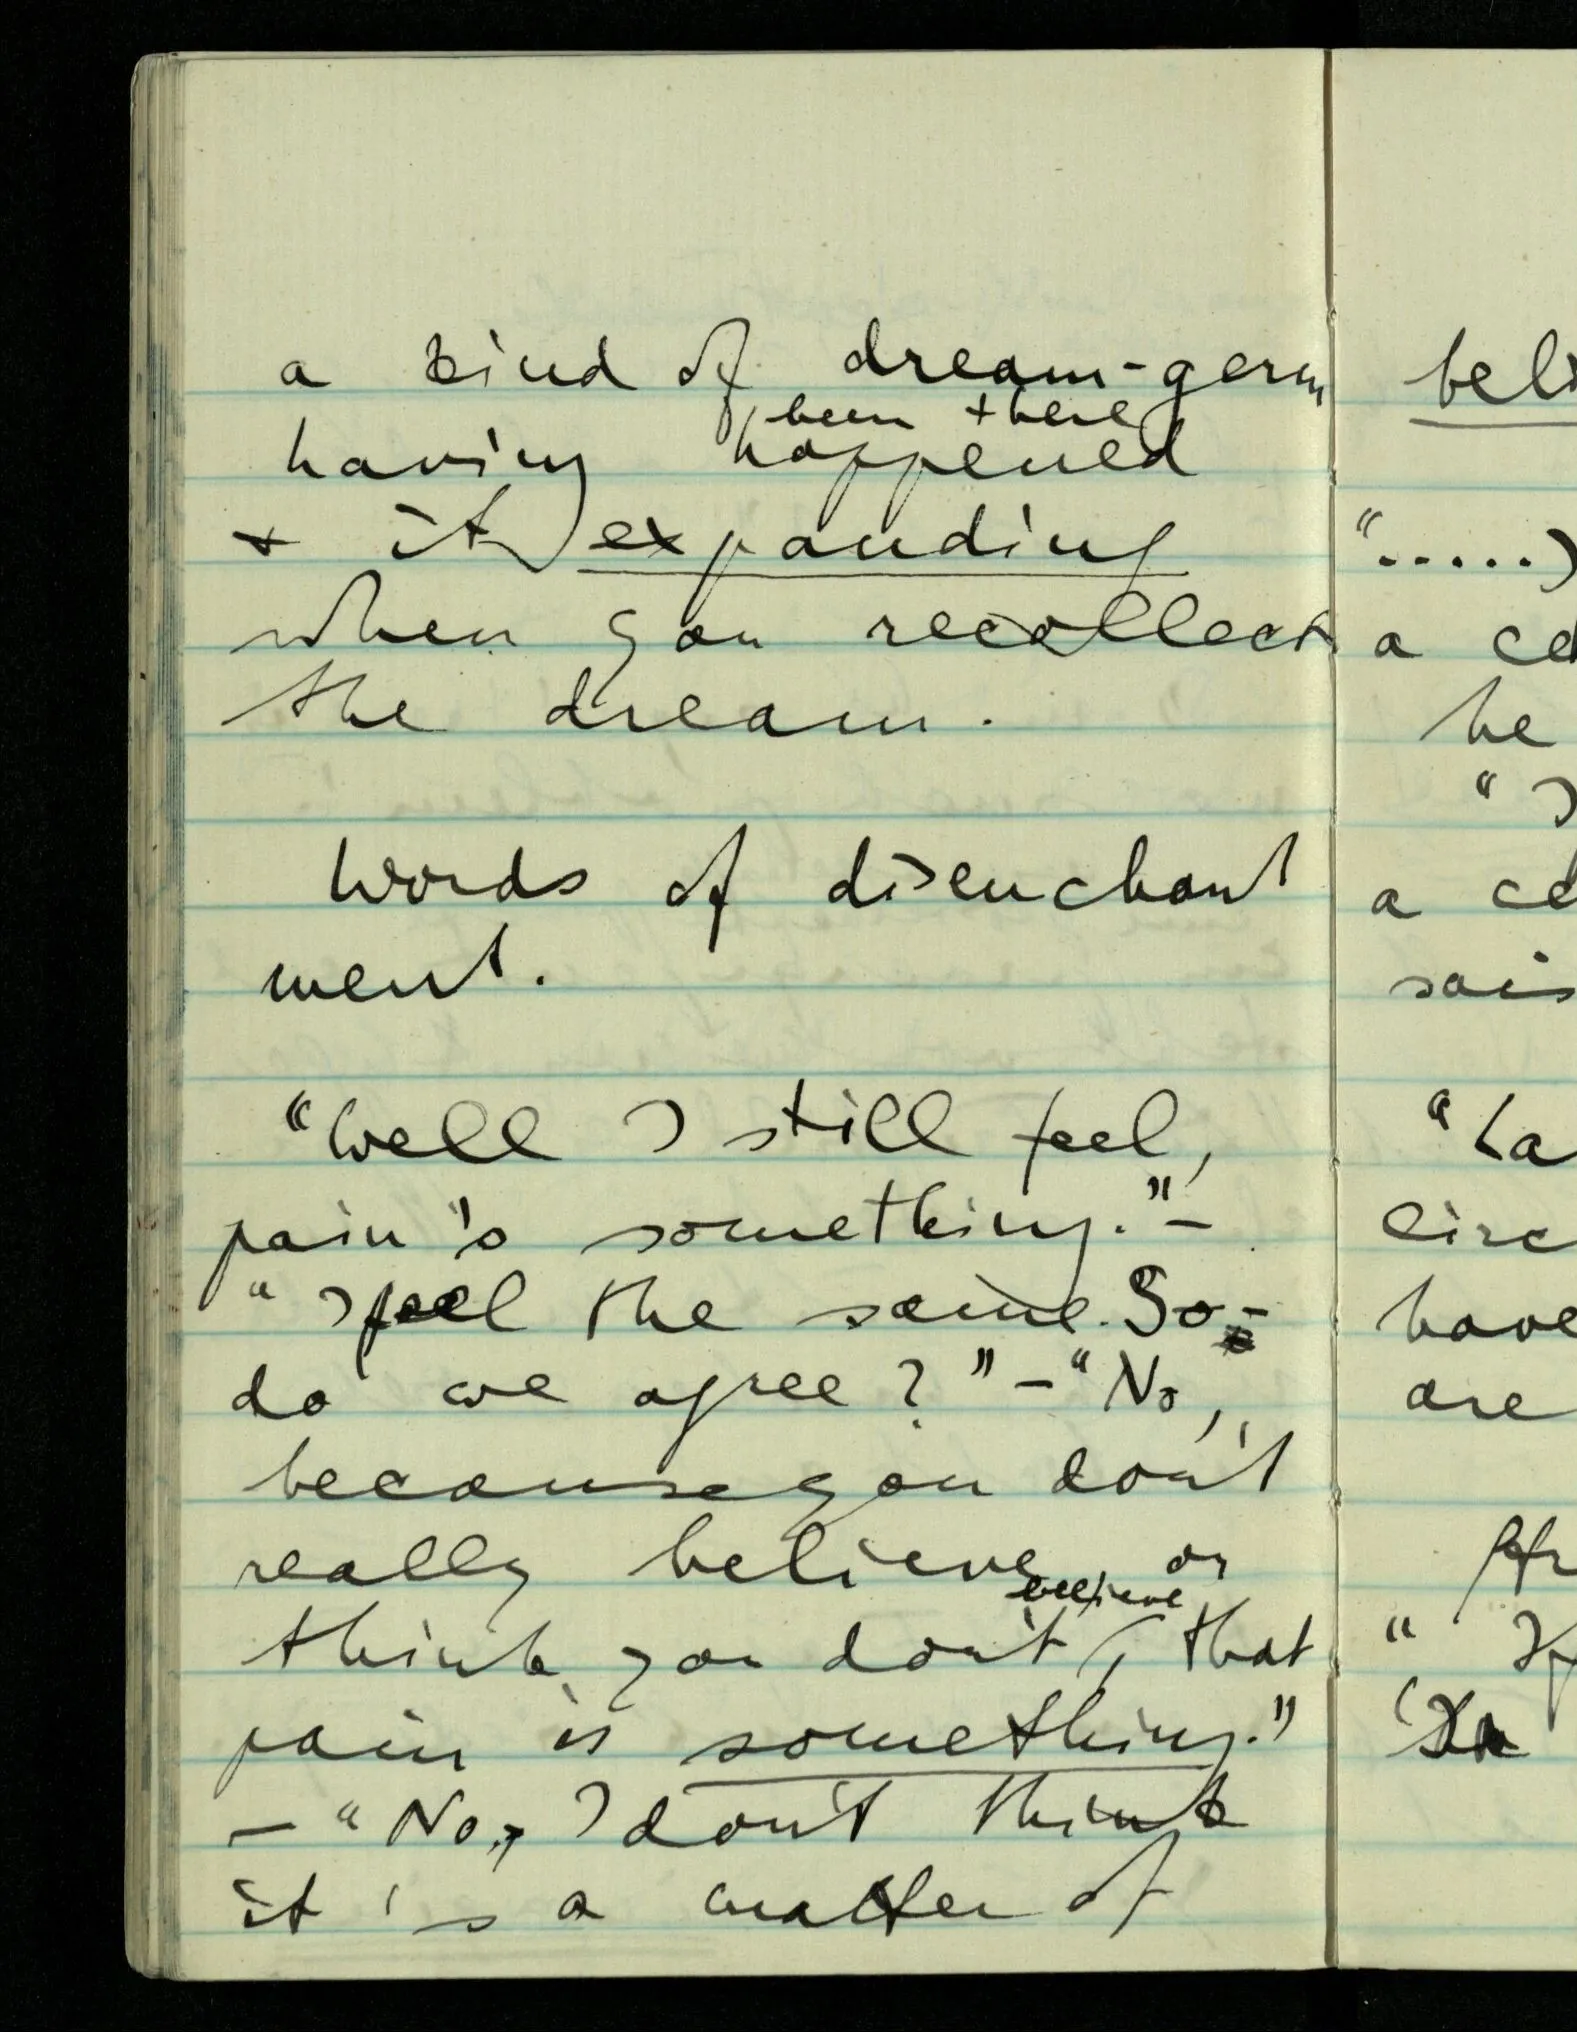 a kind of dream-germ
been there
having happened
& it expanding
when you recollect
the dream.
Words of disenchant
ment.
"Well I still feel,
pain's something."–
"I feel the same. So –
do we agree?" – "No,
because you don't
really believe, or
believe
think you don't, that
pain is something."
– "No, I don't think
it's a matter of
beli
".....I
a cd
he
"I
a cd
sais
"La
circ
have
are
Afr
"If